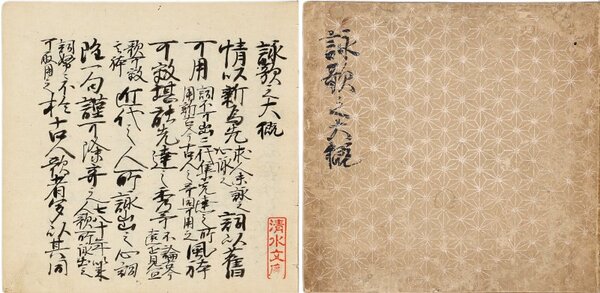 詠歌之大概
情以新為先 求人未詠之心詠之 詞以舊
可用 詞不可出三代集先達之所用新古今古人之哥同可用之 風躰
可效堪能先達之秀哥 不論古今遠近見宜
歌可效其躰 近代之人所詠出之心詞
雖一句謹可除弃之 七八十年以来人之歌所詠出之
詞努々不可取用之 於古人歌者多以其同
清水文庫
詠歌之大概